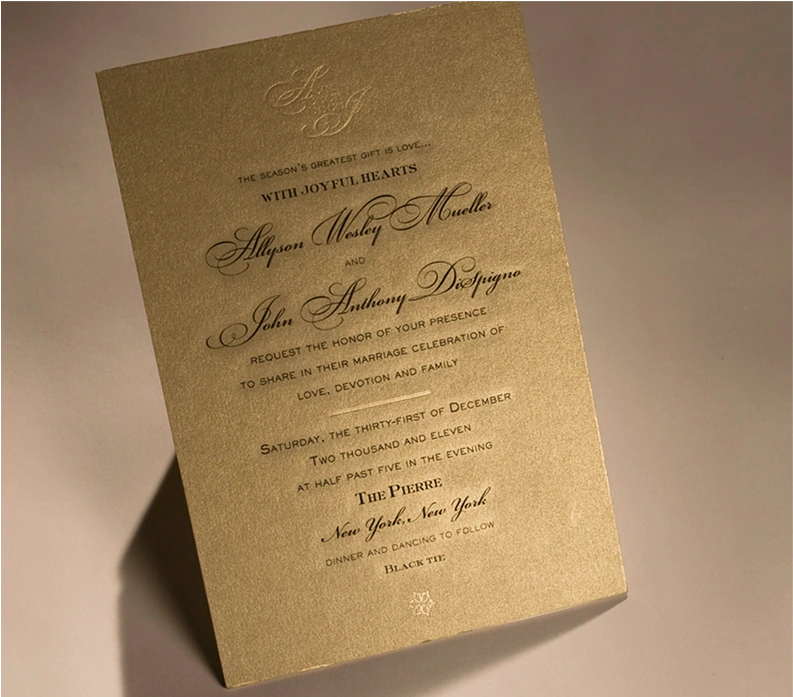 A
J
THE SEASON'S GREATEST GIFT IS LOVE...
WITH JOYFUL HEARTS
Allyson Wesley Mueller
AND
John Anthony DiSpigno
REQUEST THE HONOR OF YOUR PRESENCE
TO SHARE IN THEIR MARRIAGE CELEBRATION OF
LOVE, DEVOTION AND FAMILY
SATURDAY, THE THIRTY-FIRST OF DECEMBER
TWO THOUSAND AND ELEVEN
AT HALF PAST FIVE IN THE EVENING
THE PIERRE
New York, New York
DINNER AND DANCING TO FOLLOW
BLACK TIE